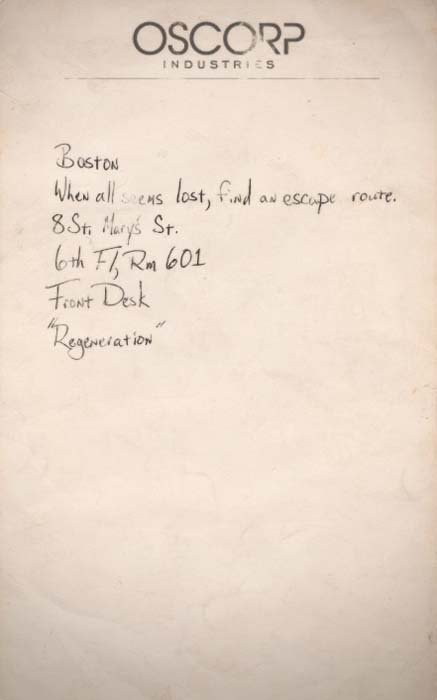 OSCORP
INDUSTRIES
Boston
When all seems lost, find an escape route.
8 St. Mary's St.
6th Fl, Rm 601
Front Desk
"Regeneration"